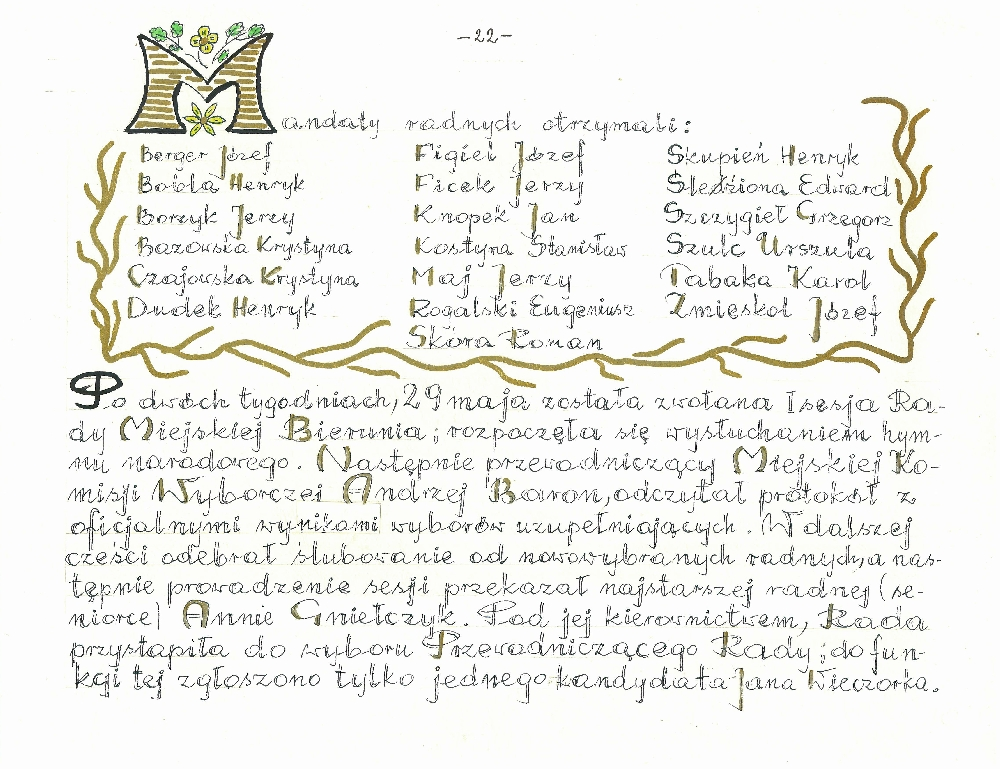 -22-
Mandaty radnych otrzymali:
Berger Józef
Bobla Henryk
Borzyk Jerzy
Bazowska Krystyna
Czajowska Krystyna
Dudek Henryk
Figiel Józef
Ficek Jerzy
Knopek Jan
Kostyra Stanisław
Maj Jerzy
Rogalski Eugeniusz
Skóra Roman
Skupień Henryk
Śledziona Edward
Szczygieł Grzegorz
Szulc Urszula
Tabaka Karol
Zmieskol Józef
Po dwóch tygodniach, 29 maja została zwołana I sesja Ra-
dy Miejskiej Bierunia; rozpoczęła się wysłuchaniem hym-
nu narodowego. Następnie przewodniczący Miejskiej Ko-
misji Wyborczej Andrzej Baron, odczytał protokół z
oficjalnymi wynikami wyborów uzupełniających. W dalszej
cześci odebrał ślubowanie od nowowybranych radnych, a nas-
tępnie prowadzenie sesji przekazał najstarszej radnej (se-
niorce) Annie Gniełczyk. Pod jej kierownictwem, Rada
przystąpiła do wyboru Przewodniczącego Rady; do fun-
kcji tej zgłoszono tylko jednego kandydata Jana Wieczorka.